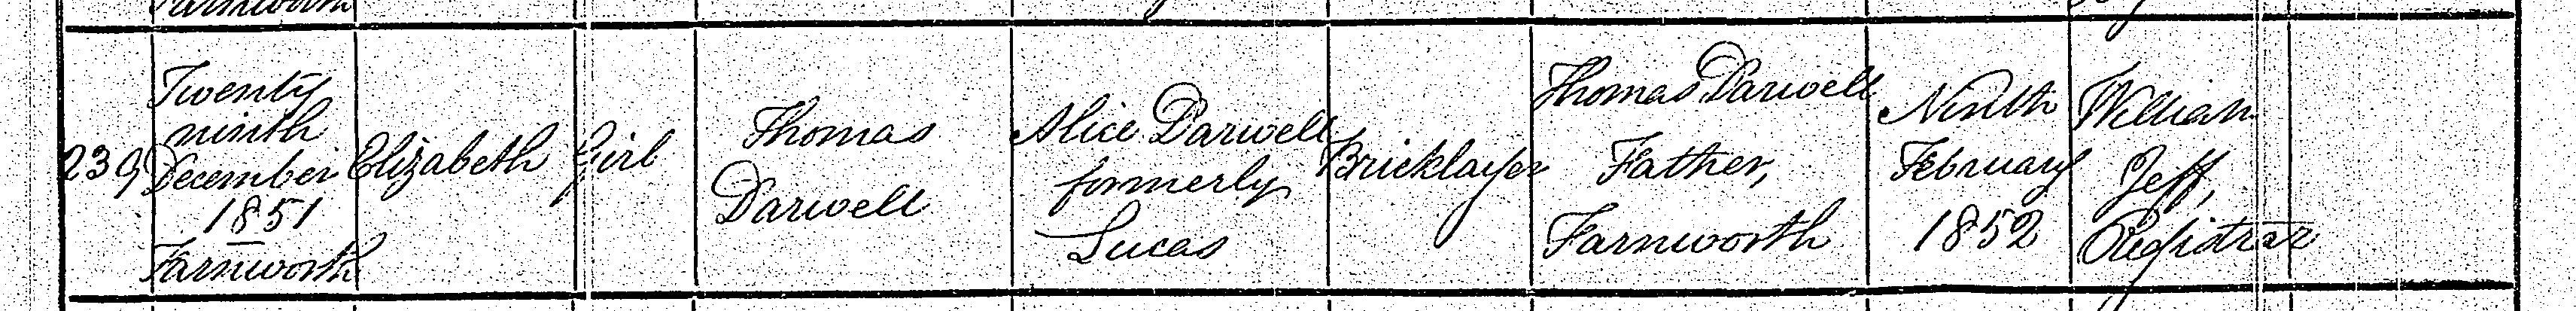 239
Twenty
ninth
December
1851
Farnworth
Elizabeth
Girl
Thomas
Darwell
Alice Darwell
formerly
Lucas
Bricklayer
Thomas Darwell
Father,
Farnworth
Ninth
February
1852
William
Jeff,
Registrar